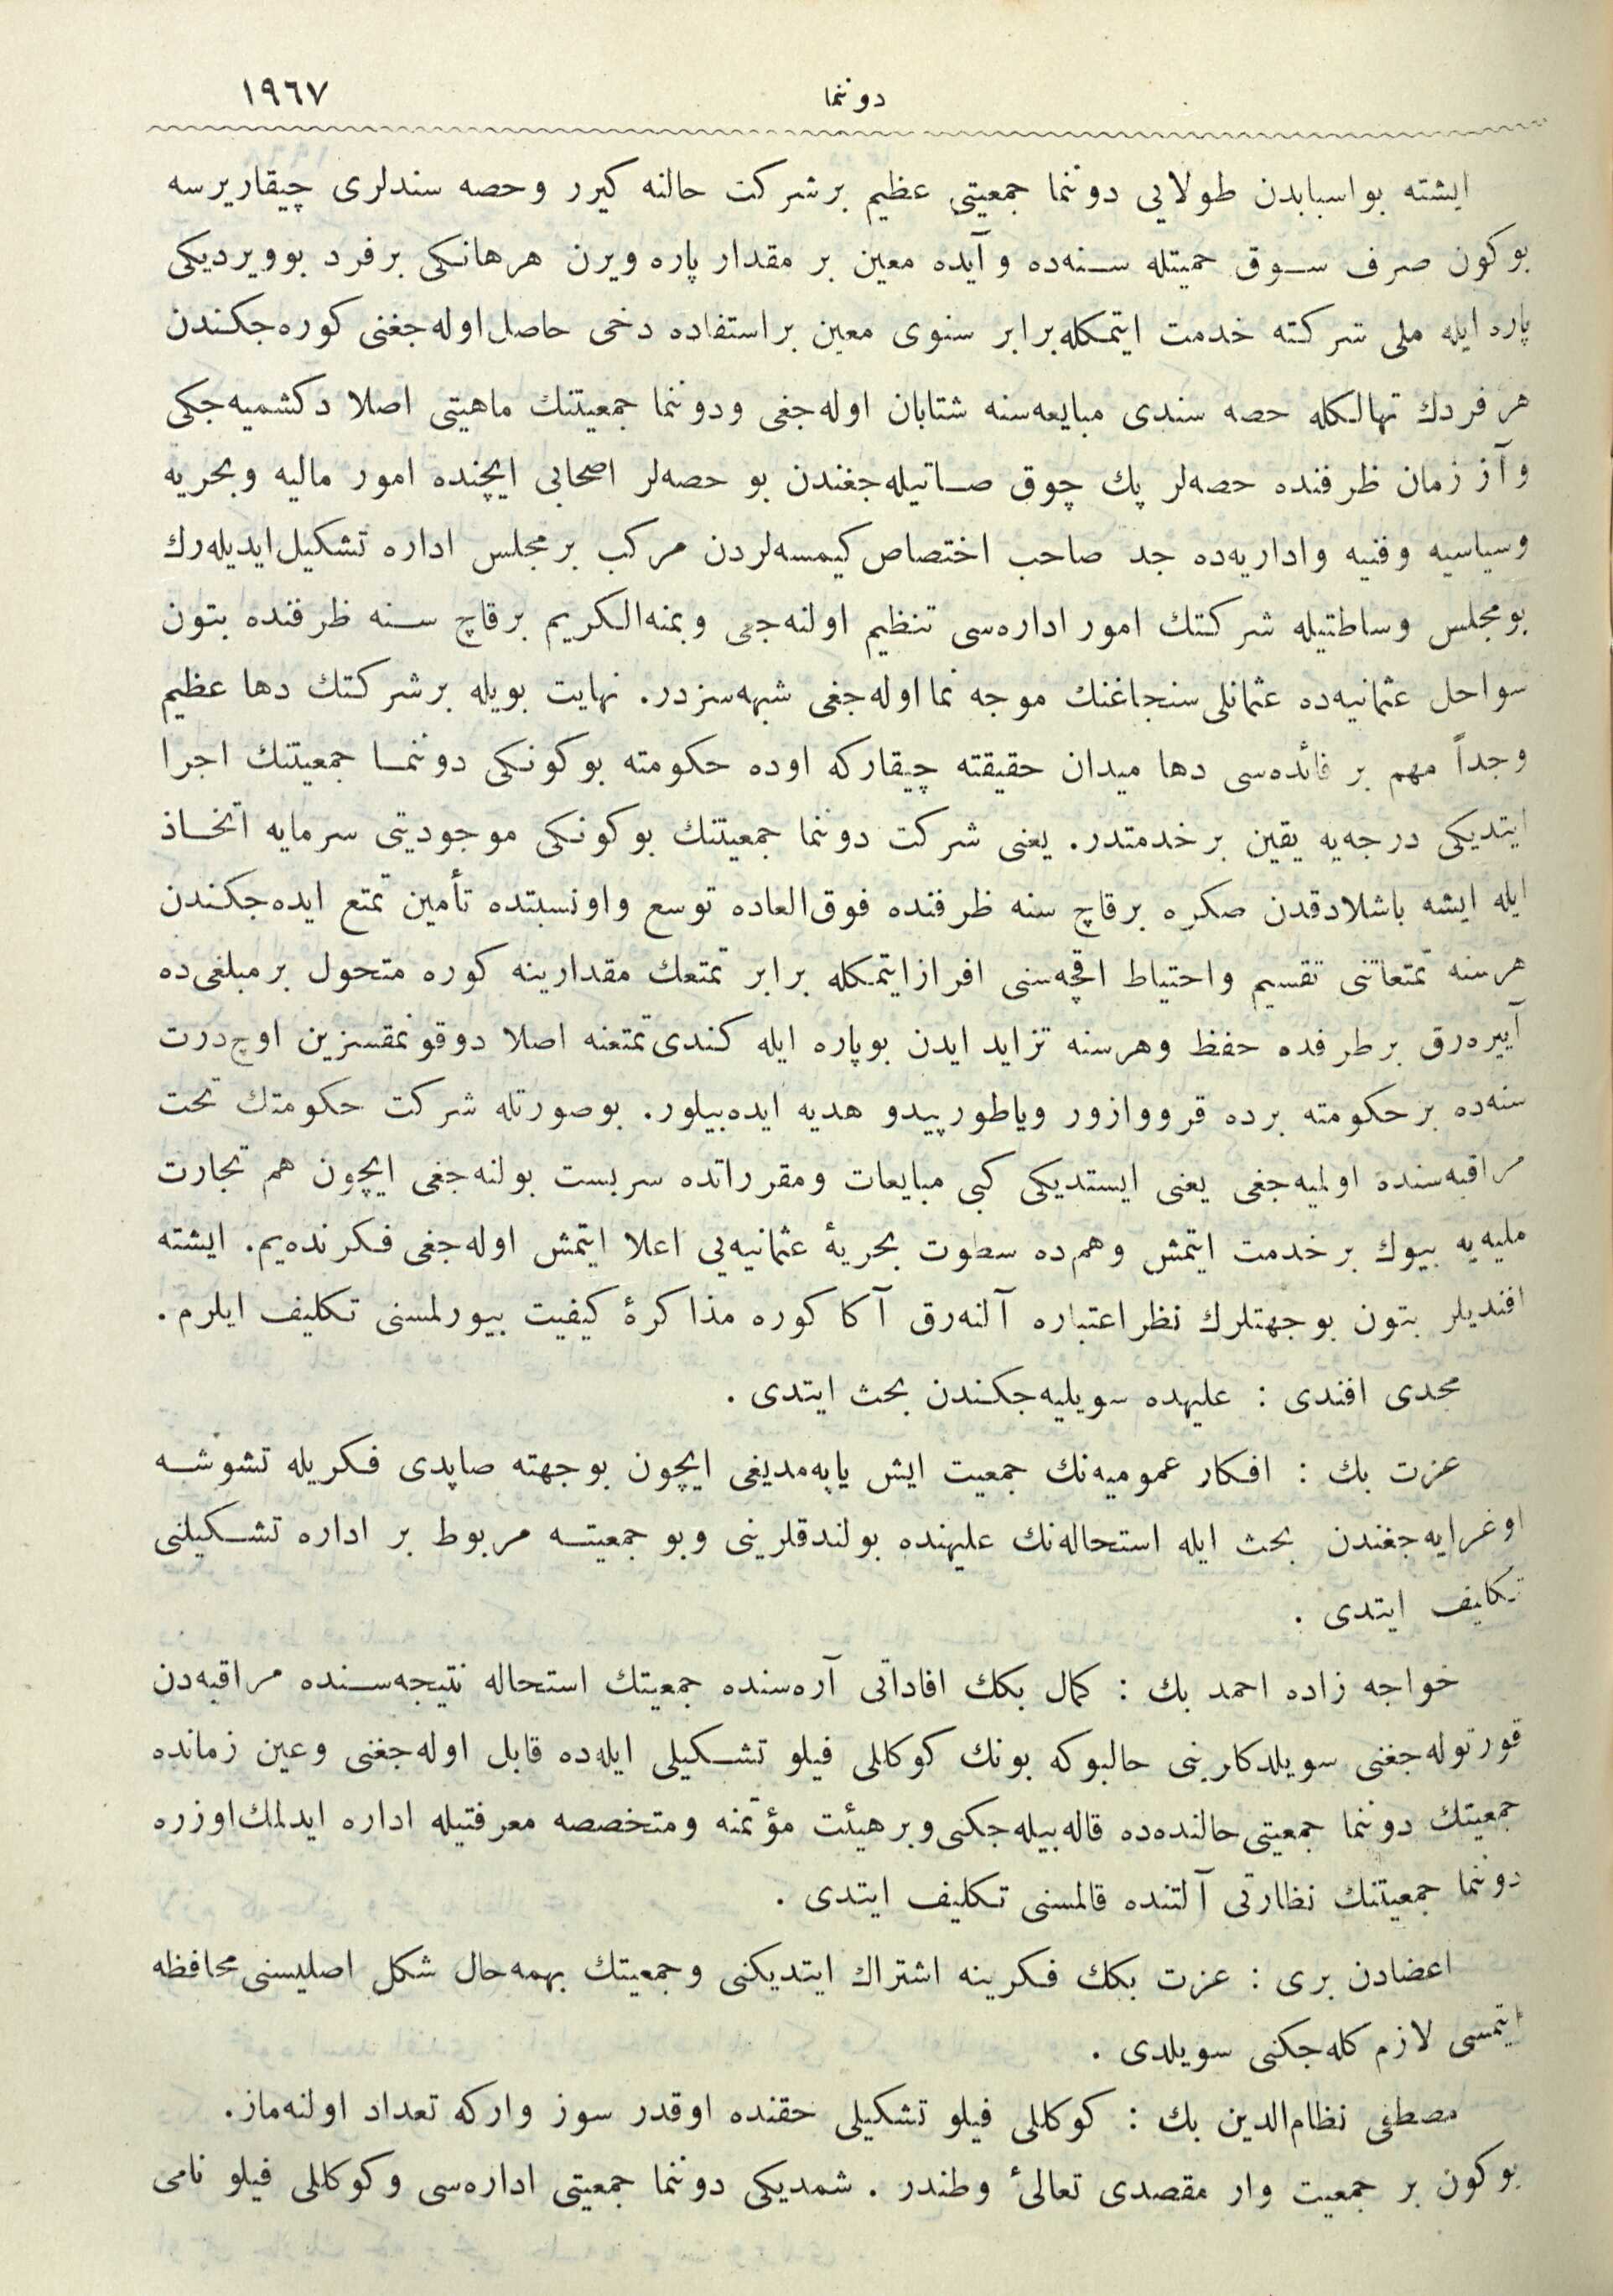 دوننما ١٩٦٧
ايشته بواسبابدن طولايى دوننما جمعيتى عظيم برشركت حالنه كيرر وحصه سندلرى چيقاريرسه
بوكون صرف سوق حميتله سنه‌ده وآيده معين بر مقدار پاره ويرن هرهانكى برفرد بوويرديكى
پاره ايله ملى شركته خدمت ايتمكله برابر سنوى معين براستفاده دخى حاصل اوله‌جغنى كوره‌جكندن
هرفردك تهالكله حصه سندى مبايعه‌سنه شتابان اوله‌جغى ودوننما جمعيتنك ماهيتى اصلا دكشميه‌جكى
وآز زمان ظرفنده حصه‌لر پك چوق صاتيله‌جغندن بو حصه‌لر اصحابى ايچنده امور ماليه وبحريه
وسياسيه وفنيه واداريه‌ده جد صاحب اختصاص كيمسه‌لردن مركب برمجلس اداره تشكيل ايديله‌رك
بومجلس وساطتيله شركتك امور اداره‌سى تنظيم اولنه‌جغى وبمنه‌الكريم برقاچ سنه ظرفنده بتون
سواحل عثمانيه‌ده عثمانلى سنجاغنك موجه نما اوله‌جغى شبهه‌سزدر. نهايت بويله برشركتك دها عظيم
وجداً مهم بر فائده‌سى دها ميدان حقيقته چيقاركه اوده حكومته بوكونكى دوننما جمعيتنك اجرا
ايتديكى درجه‌يه يقين برخدمتدر. يعنى شركت دوننما جمعيتنك بوكونكى موجوديتى سرمايه اتخاذ
ايله ايشه باشلادقدن صكره برقاچ سنه ظرفنده فوق‌العاده توسع واونسبتده تأمين تمتع ايده‌جكندن
هرسنه تمتعاتنى تقسيم واحتياط اقچه‌سنى افراز ايتمكله برابر تمتعك مقدارينه كوره متحول برمبلغى‌ده
آييره‌رق برطرفده حفظ وهرسنه تزايد ايدن بوپاره ايله كندى تمتعنه اصلا دوقونمقسزين اوچ درت
سنه‌ده برحكومته برده قرووازور وياطورپيدو هديه ايده‌بيلور. بوصورتله شركت حكومتك تحت
مراقبه‌سنده اولميه‌جغى يعنى ايستديكى كبى مبايعات ومقرراتده سربست بولنه‌جغى ايچون هم تجارت
مليه‌يه بيوك برخدمت ايتمش وهم‌ده سطوت بحريهٔ عثمانيه‌يى اعلا ايتمش اوله‌جغى فكرنده‌يم. ايشته
افنديلر بتون بوجهتلرك نظر اعتباره آلنه‌رق آكا كوره مذاكرهٔ كيفيت بيورلمسنى تكليف ايلرم.
مجدى افندى : عليهده سويليه‌جكندن بحث ايتدى .
عزت بك : افكار عموميه‌نك جمعيت ايش ياپه‌مديغى ايچون بوجهته صاپدى فكريله تشوشه
اوغرايه‌جغندن بحث ايله استحاله‌نك عليهنده بولندقلرينى وبو جمعيته مربوط بر اداره تشكيلنى
تكليف ايتدى .
خواجه زاده احمد بك : كمال بكك افاداتى آره‌سنده جمعيتك استحاله نتيجه‌سنده مراقبه‌دن
قورتوله‌جغنى سويلدكلرينى حالبوكه بونك كوكللى فيلو تشكيلى ايله‌ده قابل اوله‌جغنى وعين زمانده
جمعيتك دوننما جمعيتى حالنده‌ده قاله‌بيله‌جكنى وبرهيئت مؤتمنه ومتخصصه معرفتيله اداره ايدلمك اوزره
دوننما جمعيتنك نظارتى آلتنده قالمسنى تكليف ايتدى .
اعضادن برى : عزت بكك فكرينه اشتراك ايتديكنى وجمعيتك بهمه‌حال شكل اصليسنى محافظه
ايتمسى لازم كله‌جكنى سويلدى .
مصطفى نظام‌الدين بك : كوكللى فيلو تشكيلى حقنده اوقدر سوز واركه تعداد اولنه‌ماز.
بوكون بر جمعيت وار مقصدى تعالىٔ وطندر . شمديكى دوننما جمعيتى اداره‌سى وكوكللى فيلو نامى